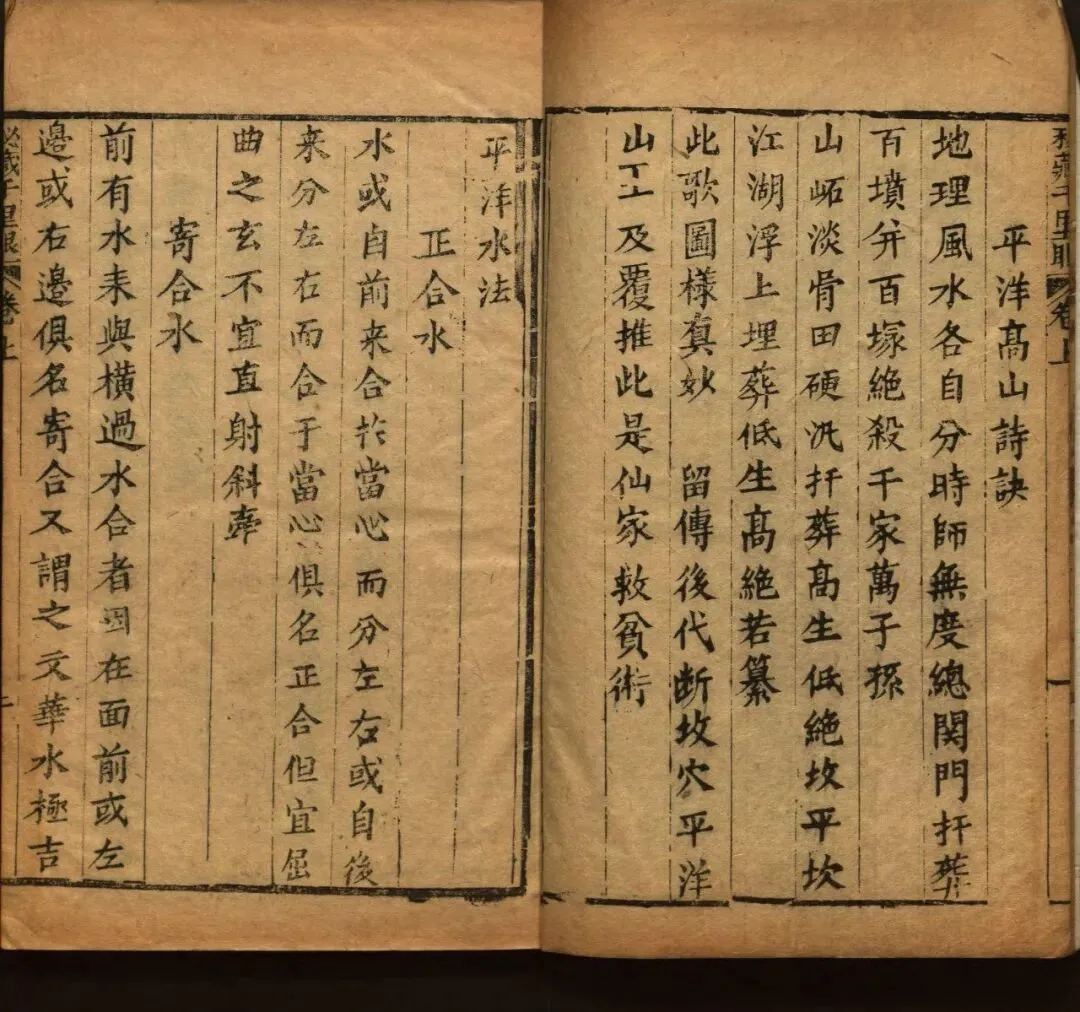 平洋高山詩訣
地理風水各自分時師無度總関門扦葬
百墳并百塚絶殺千家萬子孫
山峈淡骨田硬汎扦葬高生低絶坟平坎
江湖浮上埋葬低生高絶若纂
此歌圖樣真妙 留傳後代断坟穴平洋
山丁工及覆推此是仙家救貧術
平洋水法
正合水
水或自前来合扵當心而分左右或自後
来分左右而合于當心俱名正合但宜屈
曲之玄不宜直射斜牽
寄合水
前有水来與横過水合者固在面前或左
邊或右邊俱名寄合又謂之文華水極吉
秘藏千里眼 卷上